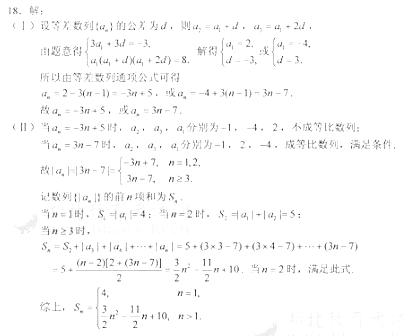 18. 解:
(Ⅰ) 设等差数列{aₙ}的公差为d, 则a₂ = a₁ + d, a₃ = a₁ + 2d,
由题意得 { 3a₁ + 3d = −3, a₁(a₁ + d)(a₁ + 2d) = 8. 解得 { a₁ = 2, d = −3, 或 { a₁ = −4, d = 3.
所以由等差数列通项公式可得
aₙ = 2 − 3(n − 1) = −3n + 5, 或aₙ = −4 + 3(n − 1) = 3n − 7.
故aₙ = −3n + 5, 或aₙ = 3n − 7.
(Ⅱ) 当aₙ = −3n + 5时, a₂, a₃, a₁分别为−1, −4, 2, 不成等比数列;
当aₙ = 3n − 7时, a₂, a₃, a₁分别为−1, 2, −4, 成等比数列, 满足条件.
故|aₙ| = |3n − 7| = { −3n + 7, n = 1,2, 3n − 7, n ≥ 3.
记数列{|aₙ|}的前n项和为Sₙ.
当n = 1时, S₁ = |a₁| = 4; 当n = 2时, S₂ = |a₁| + |a₂| = 5;
当n ≥ 3时,
Sₙ = S₂ + |a₃| + |a₄| + ⋯ + |aₙ| = 5 + (3×3 − 7) + (3×4 − 7) + ⋯ + (3n − 7)
= 5 + (n − 2)[2 + (3n − 7)]/2 = 3/2 n² − 11/2 n + 10. 当n = 2时, 满足此式.
综上, Sₙ = { 4, n = 1, 3/2 n² − 11/2 n + 10, n > 1.